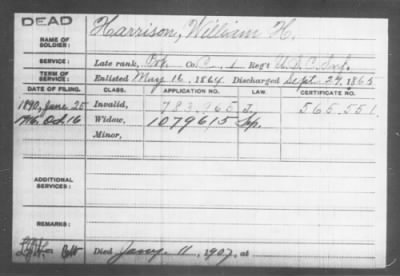 DEAD
NAME OF SOLDIER: Harrison, William H.
SERVICE: Late rank, Co. Reg't U.S.C. Inf.
TERM OF SERVICE: Enlisted May 16, 1864 Discharged Sept. 29, 1865
DATE OF FILING. CLASS. APPLICATION NO. LAW. CERTIFICATE NO.
1890, June 25 Invalid, 783,965 565.551
Oct 16 Widow, 1079615
Minor,
ADDITIONAL SERVICES:
REMARKS:
Died Jany. 11, 1907, at